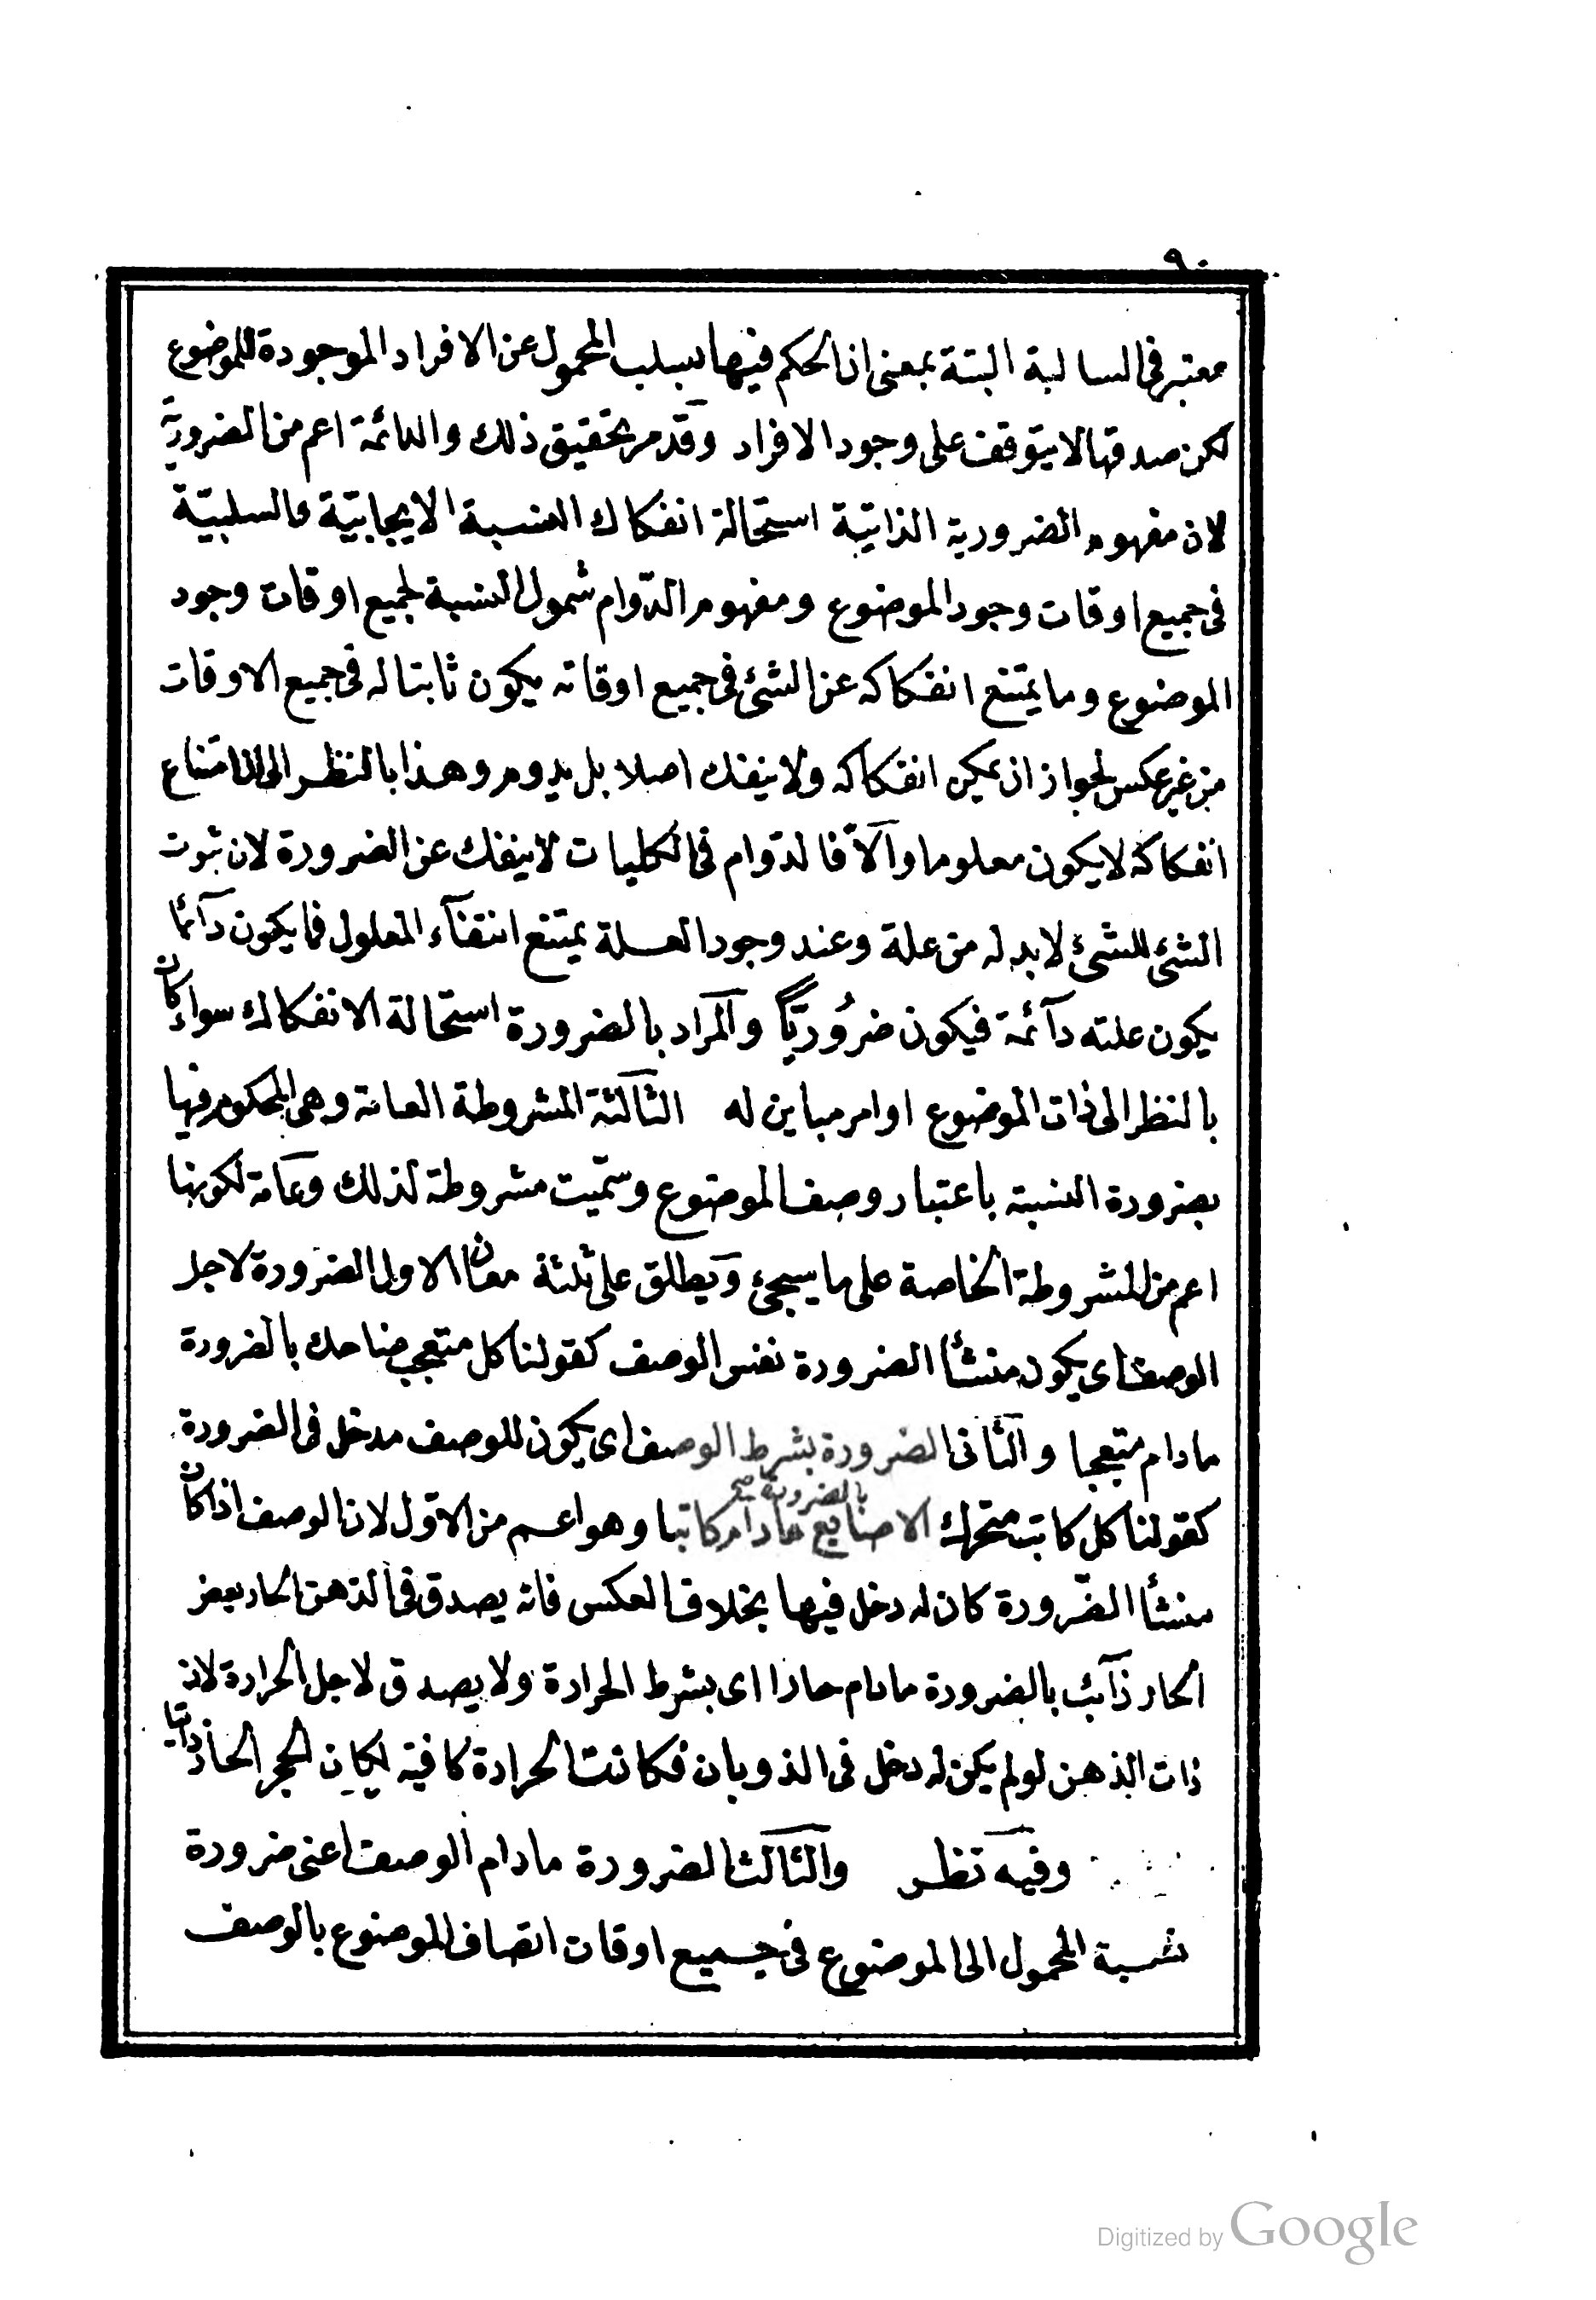 ٩٠
معتبر فى السالبة البتة بمعنى ان الحكم فيها بسلب المحمول عن الافراد الموجودة للموضوع
لكن صدقها لا يتوقف على وجود الافراد وقد مر تحقيق ذلك والدائمة اعم من الضرورية
لان مفهوم الضرورية الذاتيّة استحالة انفكاك النسبة الايجابيّة والسلبيّة
فى جميع اوقات وجود الموضوع ومفهوم الدّوام شمول النسبة لجميع اوقات وجود
الموضوع وما يمتنع انفكاكه عن الشئ فى جميع اوقاته يكون ثابتا له فى جميع الاوقات
من غير عكس لجواز ان يمكن انفكاكه ولا ينفك اصلا بل يدوم وهذا بالنظر الى ان امتناع
انفكاكه لا يكون معلوما والّا فالدّوام فى الكليات لا ينفك عن الضرورة لان ثبوت
الشئ للشئ لا بد له من علة وعند وجود العلة يمتنع انتفآء المعلول فما يكون دآئما
يكون علته دآئمة فيكون ضرُوريّاً والمراد بالضرورة استحالة الانفكاك سواء كان
بالنظر الى ذات الموضوع او امر مباين له الثالثة المشروطة العامة وهى المحكوم فيها
بضرورة النسبة باعتبار وصف الموضوع وسمّيت مشروطة لذلك وعامة لكونها
اعم من المشروطة الخاصة على ما سيجئ ويطلق على ثلثة معان الاول الضرورة لاجل
الوصف اى يكون منشأ الضرورة نفس الوصف كقولنا كل متعجب ضاحك بالضرورة
مادام متعجبا والثانى الضرورة بشرط الوصف اى يكون للوصف مدخل فى الضرورة
بالضرورة صح
كقولنا كل كاتب متحرك الاصابع مادام كاتبا وهو اعم من الاوّل لان الوصف اذا كان
منشأ الضّرورة كان له دخل فيها بخلاف العكس فانه يصدق فى الذهن الحار بعض
الحار ذآئب بالضرورة مادام حارا اى بشرط الحرارة ولا يصدق لاجل الحرارة لان
ذات الذهن لو لم يكن له دخل فى الذوبان فكانت الحرارة كافية لكان الحجر الحار ذائبا
وفيه نظر والثالث الضرورة مادام الوصف اعنى ضرورة
نسبة المحمول الى الموضوع فى جميع اوقات اتصاف الموضوع بالوصف
Digitized by Google